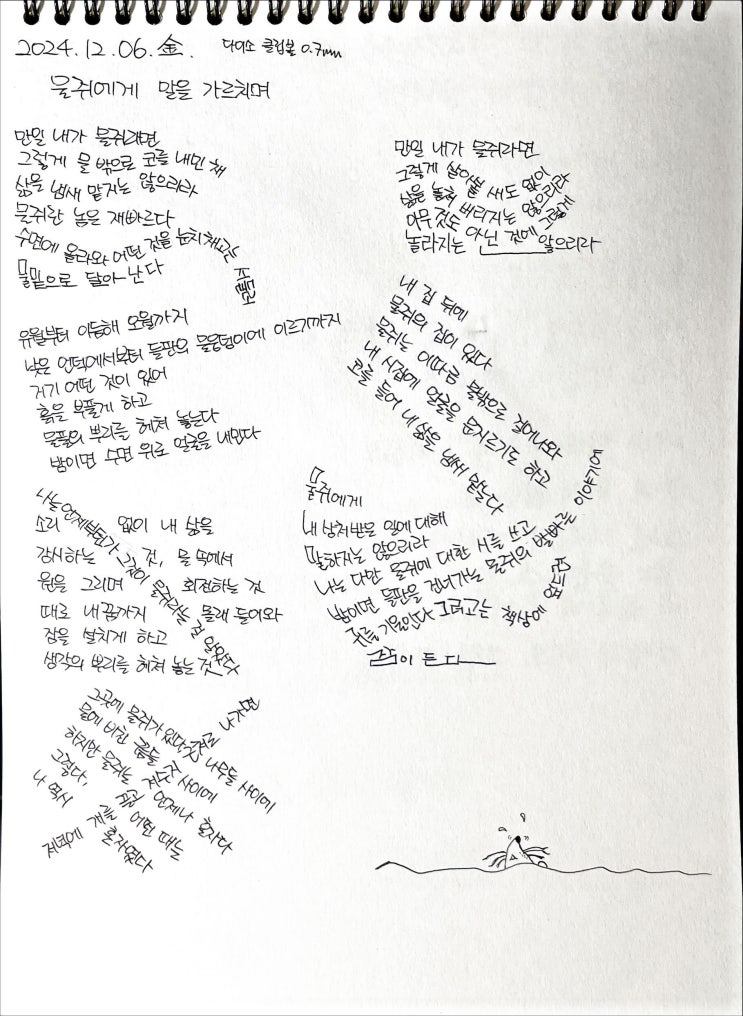 2024.12.06.金. 다이소 클립볼 0.7mm
물쥐에게 말을 가르치며
만일 내가 물쥐라면
그렇게 물 밖으로 코를 내민 채
삶을 냄새 맡지는 않으리라
물쥐란 놈은 재빠르다
수면에 올라와 어떤 것을 눈치채고는 서둘러
물밑으로 달아난다
유월부터 이듬해 오월까지
낮은 언덕에서부터 들판의 물웅덩이에 이르기까지
거기 어떤 것이 있어
흙을 부풀게 하고
물풀의 뿌리를 헤쳐 놓는다
밤이면 수면 위로 얼굴을 내민다
나는 언제부턴가 그것이 물쥐라는 걸 알았다
소리 없이 내 삶을
감시하는 것, 물 속에서
원을 그리며 회전하는 것
때로 내 꿈까지 몰래 들어와
잠을 설치게 하고
생각의 뿌리를 헤쳐 놓는 것
그곳에 물쥐가 있다
나무들 사이에
물에 비친 나무들
사이에
하지만 물쥐는 언제나 혼자다
그렇다, 어떤 때는
나 역시
저녁에 혼자였다
만일 내가 물쥐라면
그렇게 살아볼 새도 없이
삶을 놓쳐 버리지는 않으리라
아무것도 아닌 것에 그렇게
놀라지는 않으리라
내 집 뒤에
물쥐의 집이 있다
물쥐는 이따금 물밖으로 걸어나와
내 시집에 얼굴을 문지르기도 하고
코를 들어 내 삶을 냄새 맡는다
물쥐에게
내 상처받은 일에 대해
말하지는 않으리라
나는 다만 물쥐에 대한 시를 쓰고
밤이면 들판을 건너가는 물쥐의 발빠른 이야기에
귀를 기울인다 그러고는 책상에 엎드려
잠이 든다